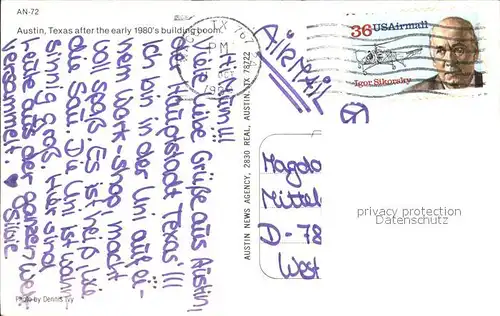 AN-72
Austin, Texas after the early 1980's building boom.
Hi
viele liebe Grüße aus Austin,
der Hauptstadt Texas'!!!
Ich bin in der Uni auf ei-
nem Work-shop! macht
voll Spaß. Es ist heiß wie
die Sau. Die Uni ist wahn-
sinnig groß. Hier sind
Leute aus der ganzen Welt
versammelt. ♥
Silvie
Photo by Dennis Ivy
AUSTIN NEWS AGENCY, 2830 REAL, AUSTIN, TX 78722
TX
PM
AIRMAIL
36 USAirmail
Igor Sikorsky
Magda
Mittel
D-78
West
privacy protection
Datenschutz